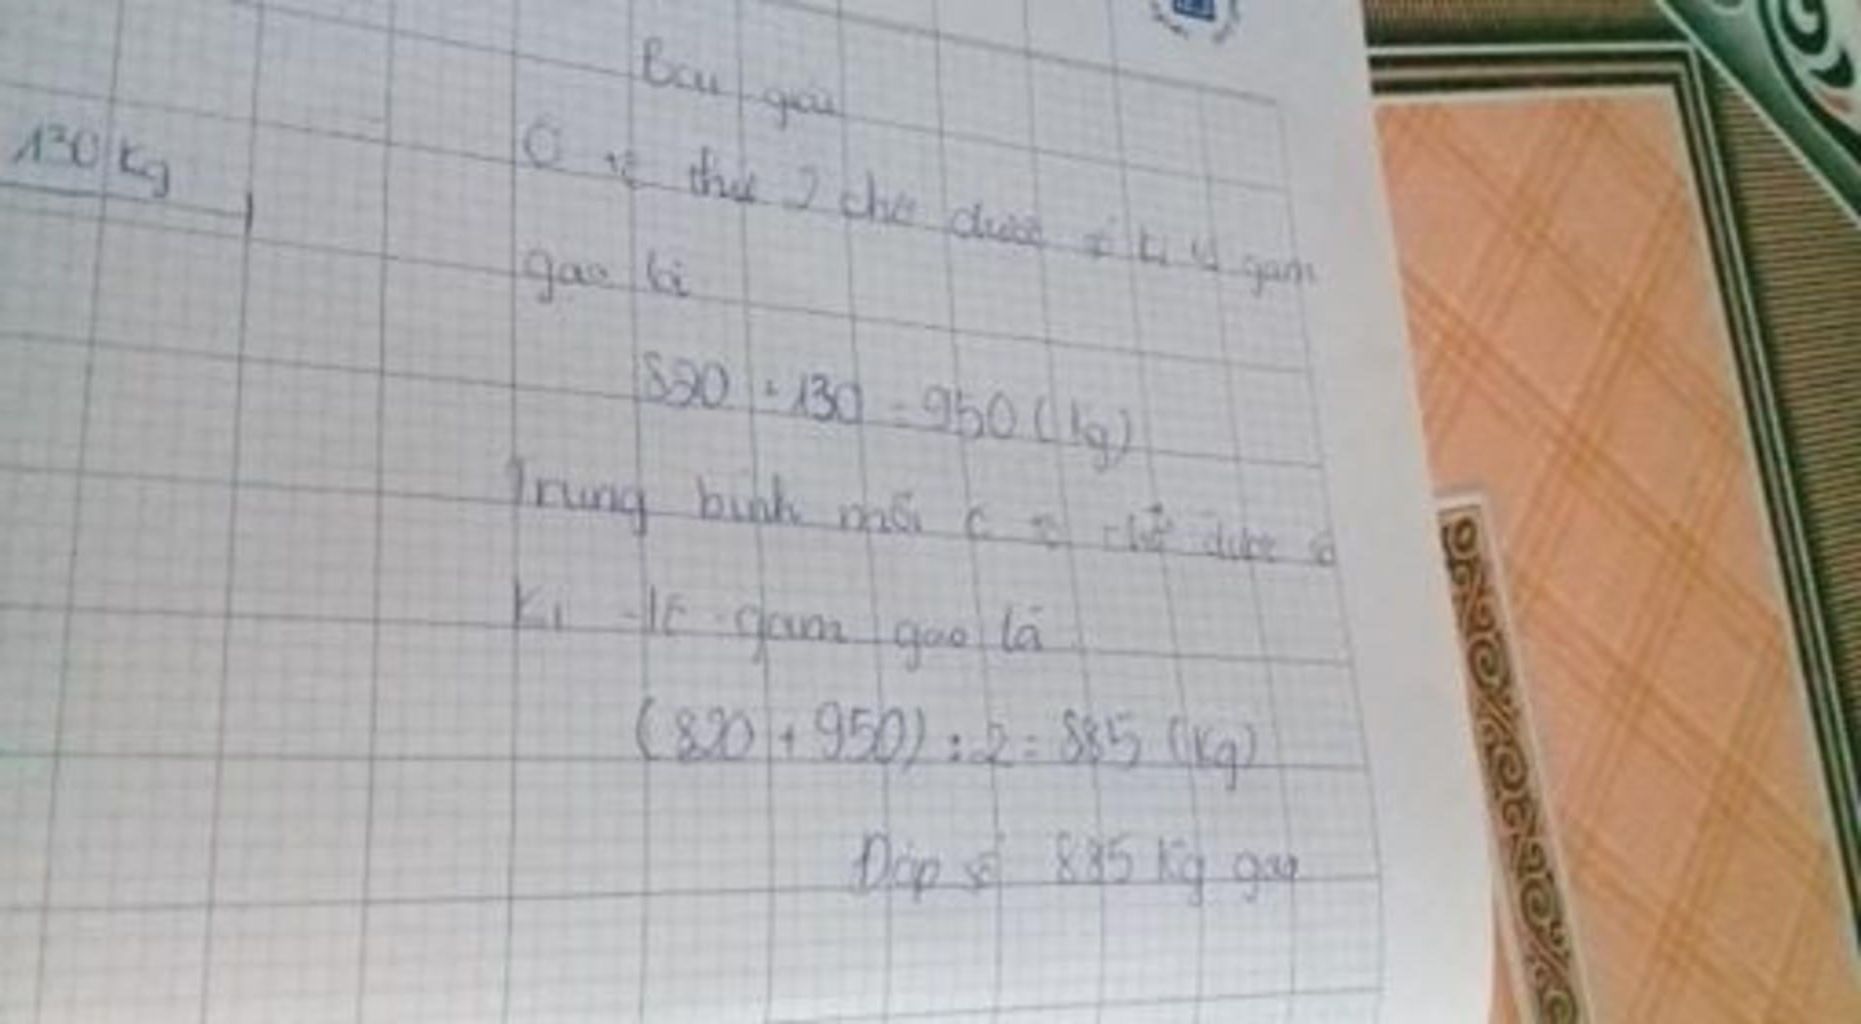 Bài giải
130 kg
Ô tô thứ 2 chở được số ki lô gam
gạo là
820 + 130 = 950 (kg)
Trung bình mỗi ô tô chở được số
Ki - lô - gam gạo là
(820 + 950) : 2 = 885 (kg)
Đáp số 885 kg gạo